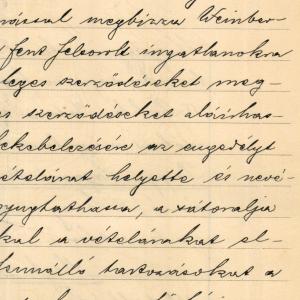 nással megbizza Weinber-
fent felsorolt ingatlanokra
leges szerződéseket meg-
s szerződéseket aláírhas-
bekebelezésére az engedélyt
vételárat helyette és nevé-
nyugtathassa, a sátoralja
kul a vételárakat el-
fennálló tartozásokat a